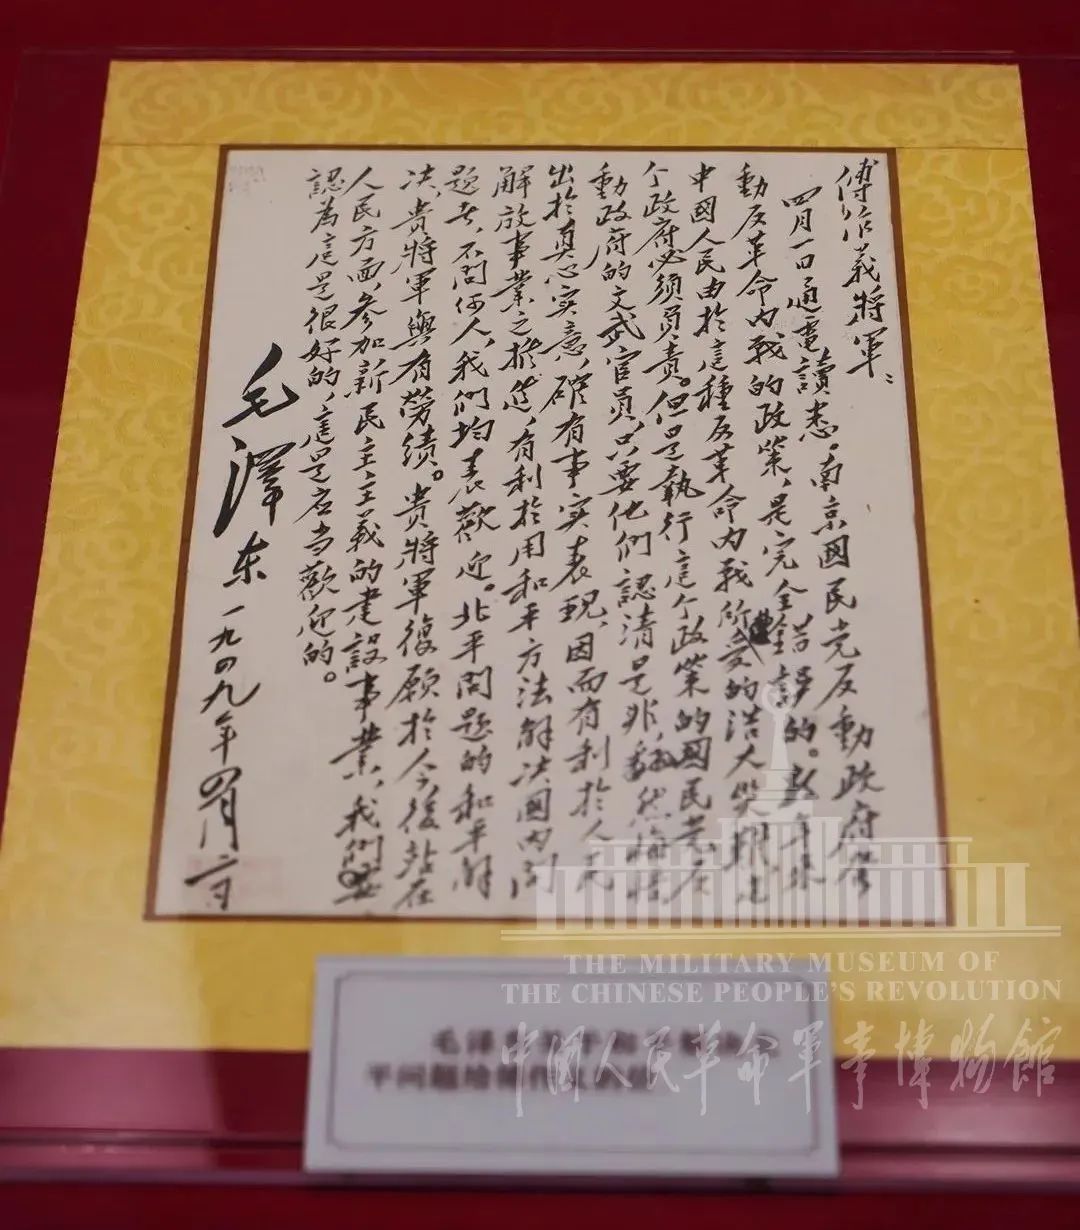 傅作義將軍：
四月一日通電讀悉。南京國民党反動政府發
動反革命内戰的政策，是完全錯誤的。數年來
中國人民由於這種反革命内戰所受的浩大災難，這
个政府必須負責。但是執行這个政策的國民党反
動政府的文武官員，只要他們認清是非，翻然悔悟，
出於真心實意，確有事實表現，因而有利於人民
解放事業之推進，有利於用和平方法解决國内問
題者，不問何人，我們均表歡迎。北平問題的和平解
决，貴將軍與有勞績。貴將軍復願於今後站在
人民方面，參加新民主主義的建設事業，我們
認為這是很好的，這是应当歡迎的。
毛澤东 一九四九年四月二日
THE MILITARY MUSEUM OF
THE CHINESE PEOPLE'S REVOLUTION
中國人民革命軍事博物館
毛泽东
平问题给